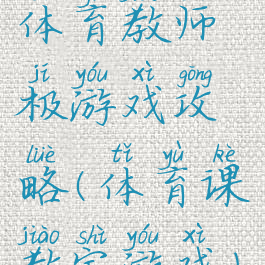 体育教师
jī yóu xì gōng
极游戏攻
lüè tǐ yù kè
略(体育课
jiào shì yóu xì
教室游戏)